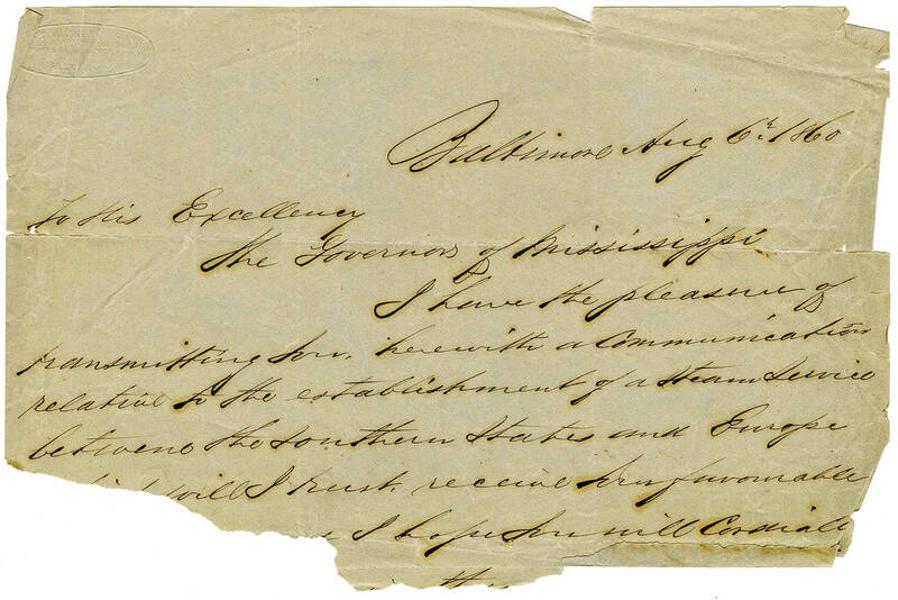 Baltimore Aug 6th 1860
To His Excellency
The Governor of Mississippi
I have the pleasure of
transmitting you, herewith a Communication
relative to the establishment of a steam service
between the southern States and Europe
will I trust, receive your favourable
I hope you will Cordiall